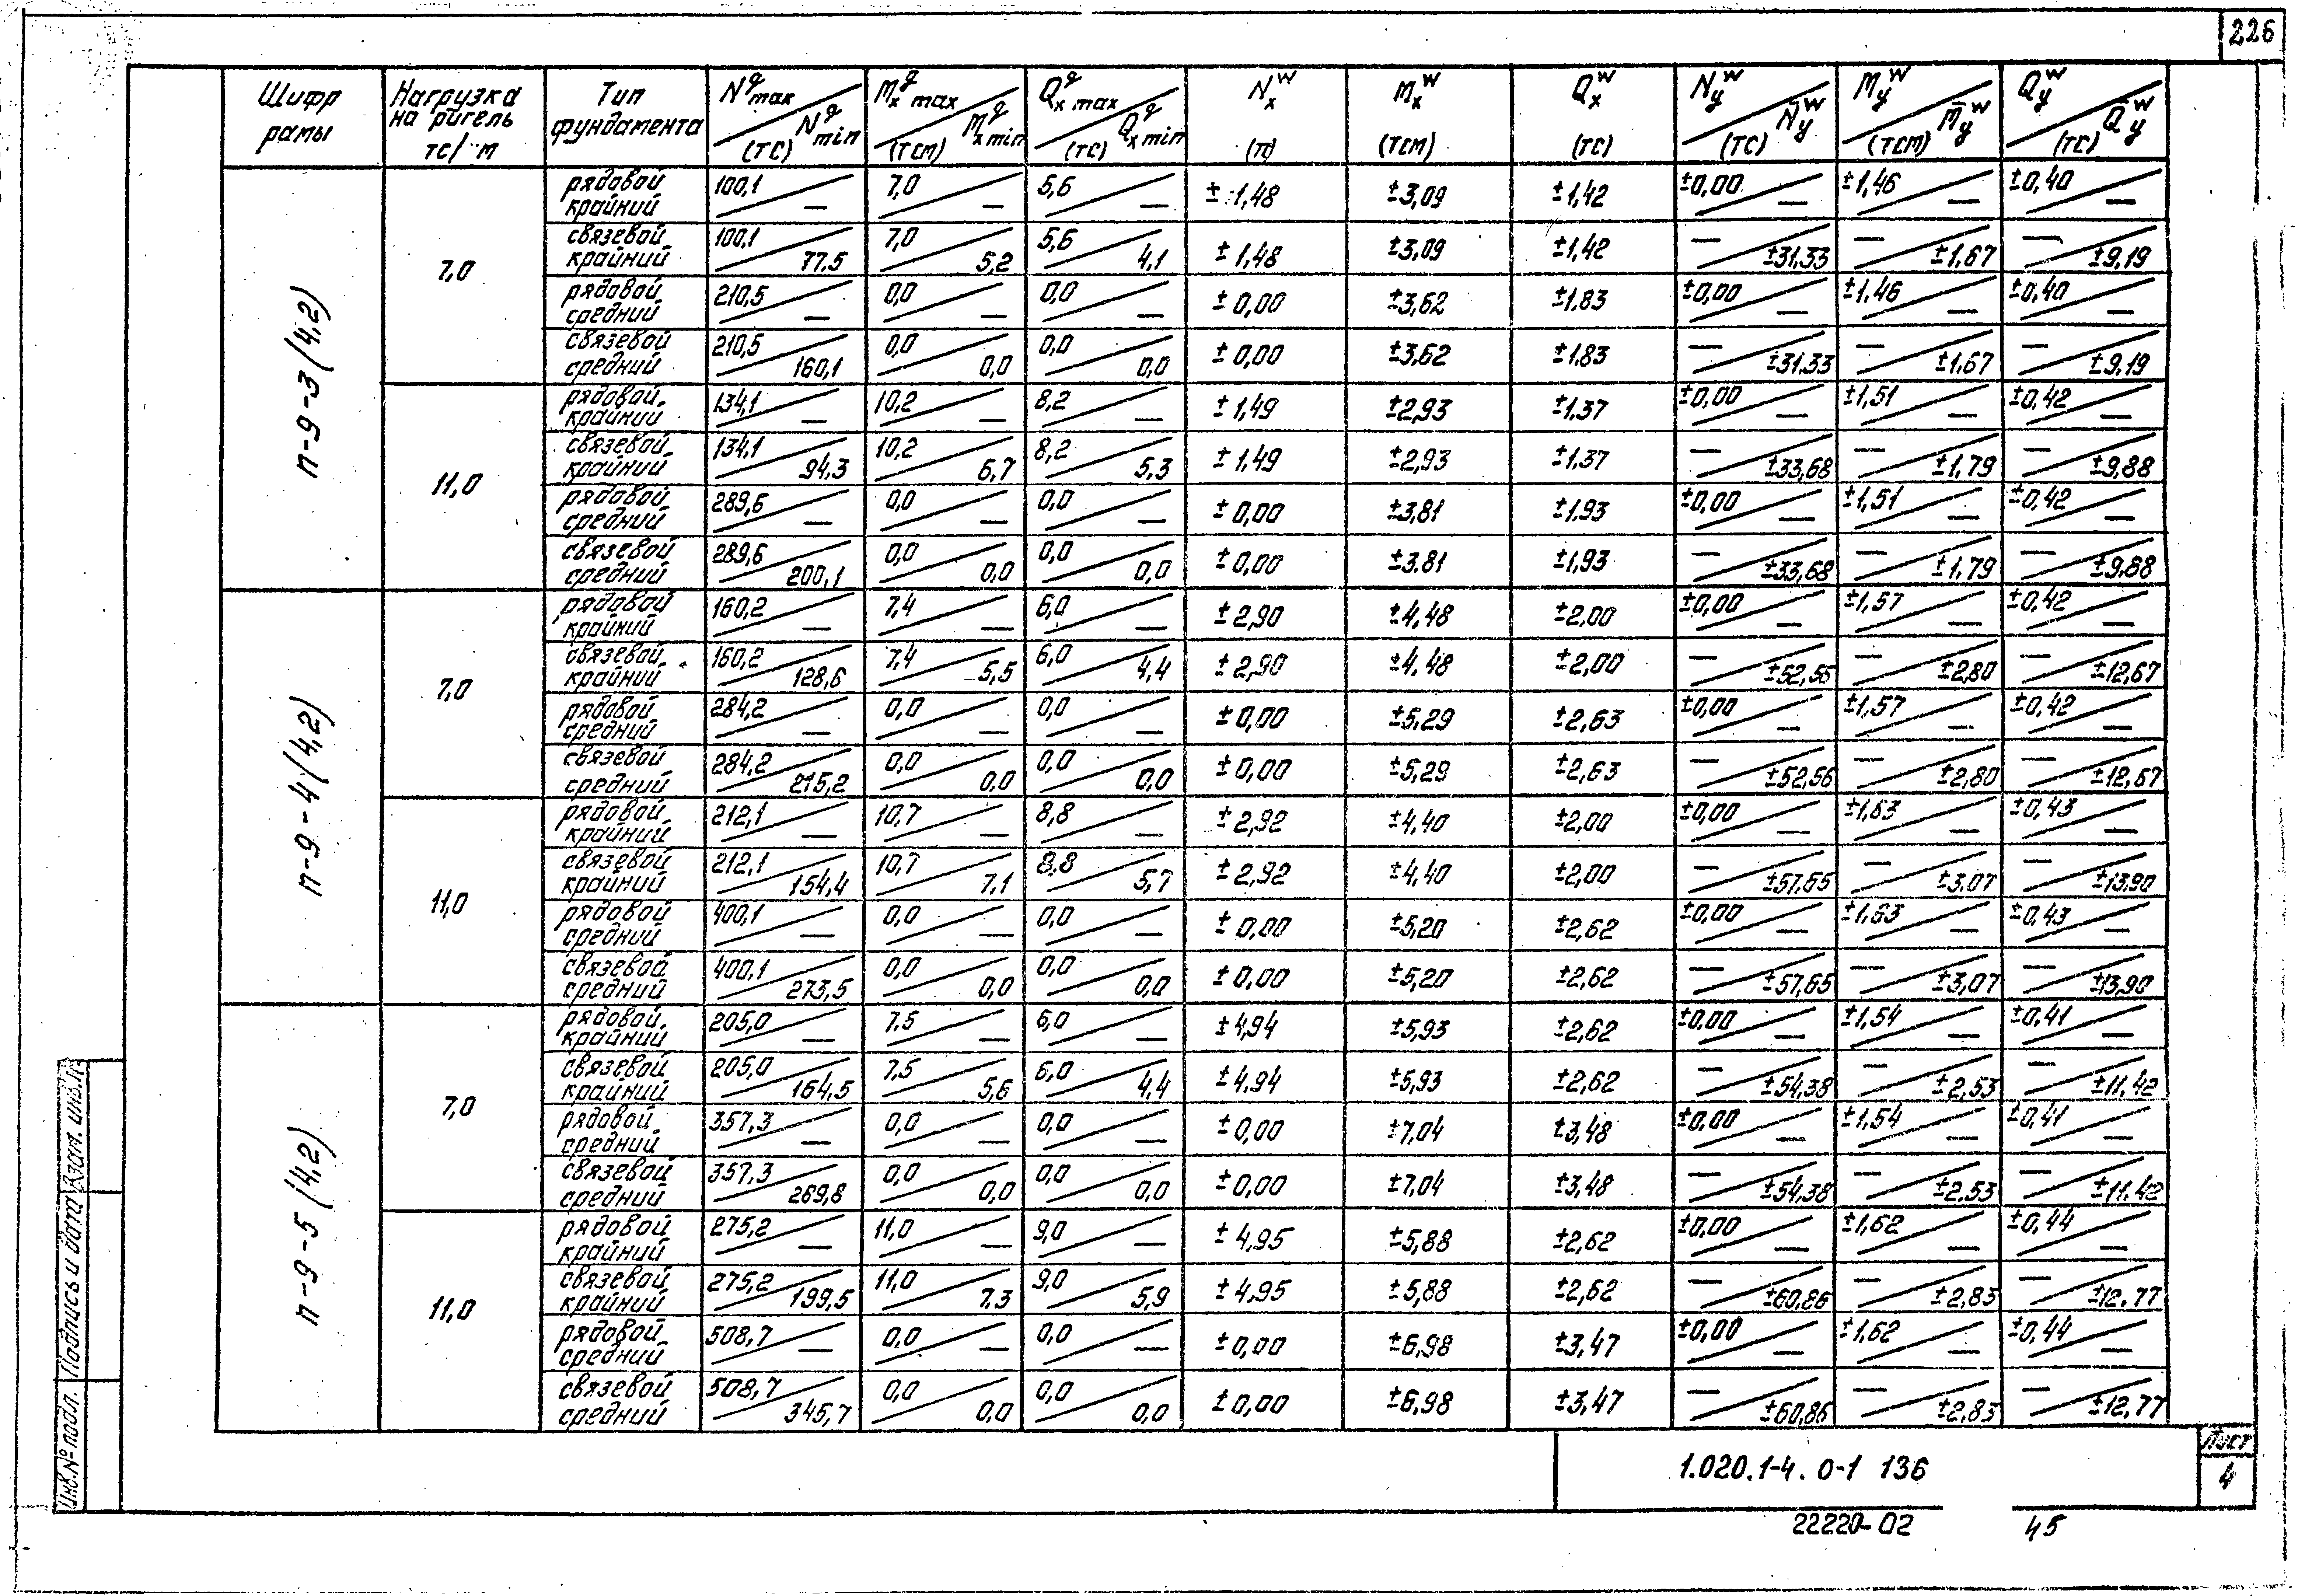 226
Шифр рамы | Нагрузка на ригель тс/м | Тип фундамента | N^q max / N^q min (тс) | M^q x max / M^q x min (тсм) | Q^q x max / Q^q x min (тс) | N^w x (тс) | M^w x (тсм) | Q^w x (тс) | N^w y / N̄^w y (тс) | M^w y / M̄^w y (тсм) | Q^w y / Q̄^w y (тс)
п-9-3 (4,2)
7,0
рядовой крайний | 100,1 / — | 7,0 / — | 5,6 / — | ±1,48 | ±3,09 | ±1,42 | ±0,00 / — | ±1,46 / — | ±0,40 / —
связевой крайний | 100,1 / 77,5 | 7,0 / 5,2 | 5,6 / 4,1 | ±1,48 | ±3,09 | ±1,42 | — / ±31,33 | — / ±1,67 | — / ±9,19
рядовой средний | 210,5 / — | 0,0 / — | 0,0 / — | ±0,00 | ±3,62 | ±1,83 | ±0,00 / — | ±1,46 / — | ±0,40 / —
связевой средний | 210,5 / 160,1 | 0,0 / 0,0 | 0,0 / 0,0 | ±0,00 | ±3,62 | ±1,83 | — / ±31,33 | — / ±1,67 | — / ±9,19
11,0
рядовой крайний | 134,1 / — | 10,2 / — | 8,2 / — | ±1,49 | ±2,93 | ±1,37 | ±0,00 / — | ±1,51 / — | ±0,42 / —
связевой крайний | 134,1 / 94,3 | 10,2 / 6,7 | 8,2 / 5,3 | ±1,49 | ±2,93 | ±1,37 | — / ±33,68 | — / ±1,79 | — / ±9,88
рядовой средний | 289,6 / — | 0,0 / — | 0,0 / — | ±0,00 | ±3,81 | ±1,93 | ±0,00 / — | ±1,51 / — | ±0,42 / —
связевой средний | 289,6 / 200,1 | 0,0 / 0,0 | 0,0 / 0,0 | ±0,00 | ±3,81 | ±1,93 | — / ±33,68 | — / ±1,79 | — / ±9,88
п-9-4 (4,2)
7,0
рядовой крайний | 160,2 / — | 7,4 / — | 6,0 / — | ±2,90 | ±4,48 | ±2,00 | ±0,00 / — | ±1,57 / — | ±0,42 / —
связевой крайний | 160,2 / 128,6 | 7,4 / 5,5 | 6,0 / 4,4 | ±2,90 | ±4,48 | ±2,00 | — / ±52,56 | — / ±2,80 | — / ±12,67
рядовой средний | 284,2 / — | 0,0 / — | 0,0 / — | ±0,00 | ±5,29 | ±2,63 | ±0,00 / — | ±1,57 / — | ±0,42 / —
связевой средний | 284,2 / 215,2 | 0,0 / 0,0 | 0,0 / 0,0 | ±0,00 | ±5,29 | ±2,63 | — / ±52,56 | — / ±2,80 | — / ±12,67
11,0
рядовой крайний | 212,1 / — | 10,7 / — | 8,8 / — | ±2,92 | ±4,40 | ±2,00 | ±0,00 / — | ±1,63 / — | ±0,43 / —
связевой крайний | 212,1 / 154,4 | 10,7 / 7,1 | 8,8 / 5,7 | ±2,92 | ±4,40 | ±2,00 | — / ±57,65 | — / ±3,07 | — / ±13,90
рядовой средний | 400,1 / — | 0,0 / — | 0,0 / — | ±0,00 | ±5,20 | ±2,62 | ±0,00 / — | ±1,63 / — | ±0,43 / —
связевой средний | 400,1 / 273,5 | 0,0 / 0,0 | 0,0 / 0,0 | ±0,00 | ±5,20 | ±2,62 | — / ±57,65 | — / ±3,07 | — / ±13,90
п-9-5 (4,2)
7,0
рядовой крайний | 205,0 / — | 7,5 / — | 6,0 / — | ±4,94 | ±5,93 | ±2,62 | ±0,00 / — | ±1,54 / — | ±0,41 / —
связевой крайний | 205,0 / 164,5 | 7,5 / 5,6 | 6,0 / 4,4 | ±4,94 | ±5,93 | ±2,62 | — / ±54,38 | — / ±2,53 | — / ±11,42
рядовой средний | 357,3 / — | 0,0 / — | 0,0 / — | ±0,00 | ±7,04 | ±3,48 | ±0,00 / — | ±1,54 / — | ±0,41 / —
связевой средний | 357,3 / 269,8 | 0,0 / 0,0 | 0,0 / 0,0 | ±0,00 | ±7,04 | ±3,48 | — / ±54,38 | — / ±2,53 | — / ±11,42
11,0
рядовой крайний | 275,2 / — | 11,0 / — | 9,0 / — | ±4,95 | ±5,88 | ±2,62 | ±0,00 / — | ±1,62 / — | ±0,44 / —
связевой крайний | 275,2 / 199,5 | 11,0 / 7,3 | 9,0 / 5,9 | ±4,95 | ±5,88 | ±2,62 | — / ±60,86 | — / ±2,83 | — / ±12,77
рядовой средний | 508,7 / — | 0,0 / — | 0,0 / — | ±0,00 | ±6,98 | ±3,47 | ±0,00 / — | ±1,62 / — | ±0,44 / —
связевой средний | 508,7 / 345,7 | 0,0 / 0,0 | 0,0 / 0,0 | ±0,00 | ±6,98 | ±3,47 | — / ±60,86 | — / ±2,83 | — / ±12,77
Инв.№ подл. Подпись и дата Взам. инв.№
1.020.1-4. 0-1 136
Лист
4
22220-02 45